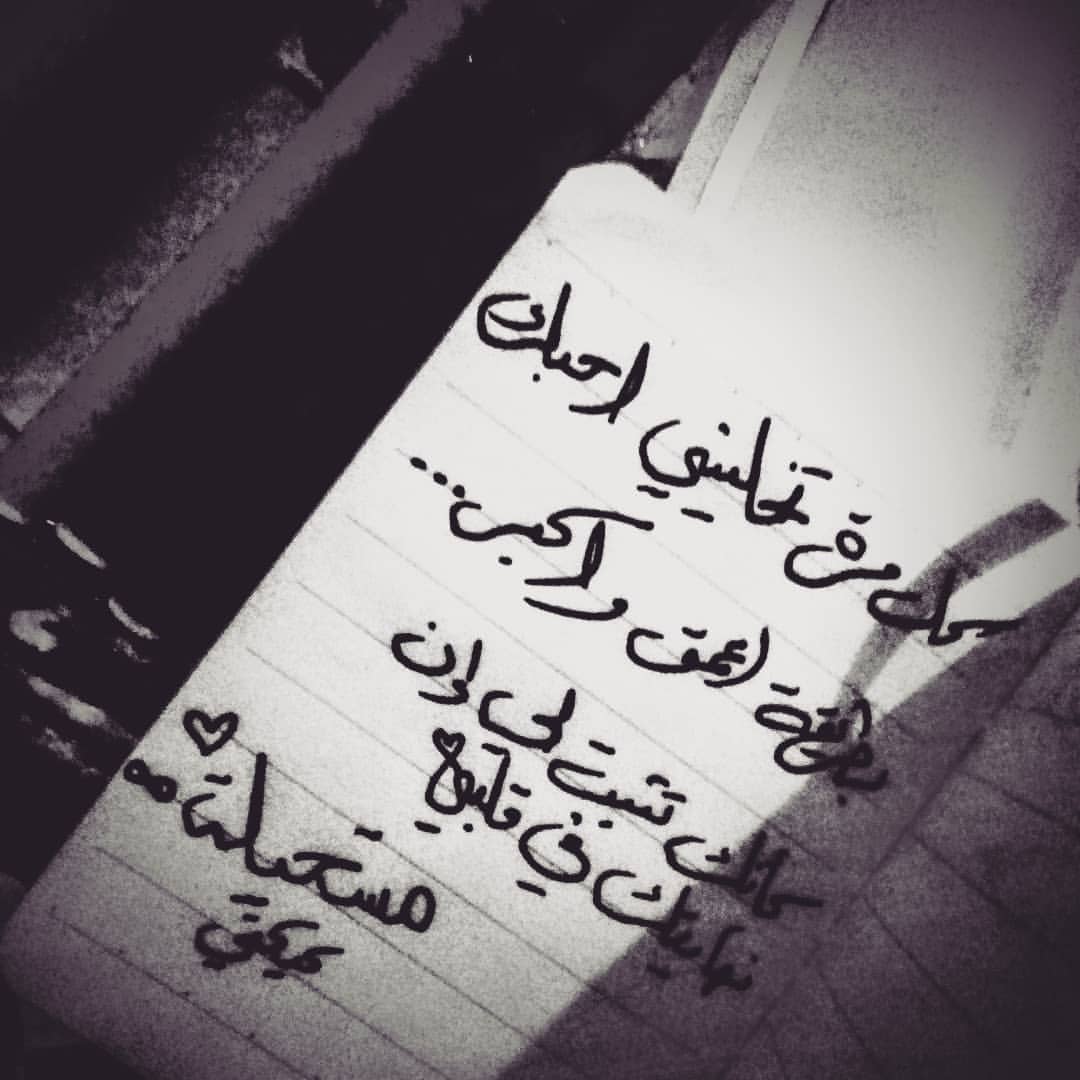 كل مرة تخليني احبك
بطريقة اعمق واكبر...
كانك تثبت لي ان
نهايتك في قلبي
مستحيلة